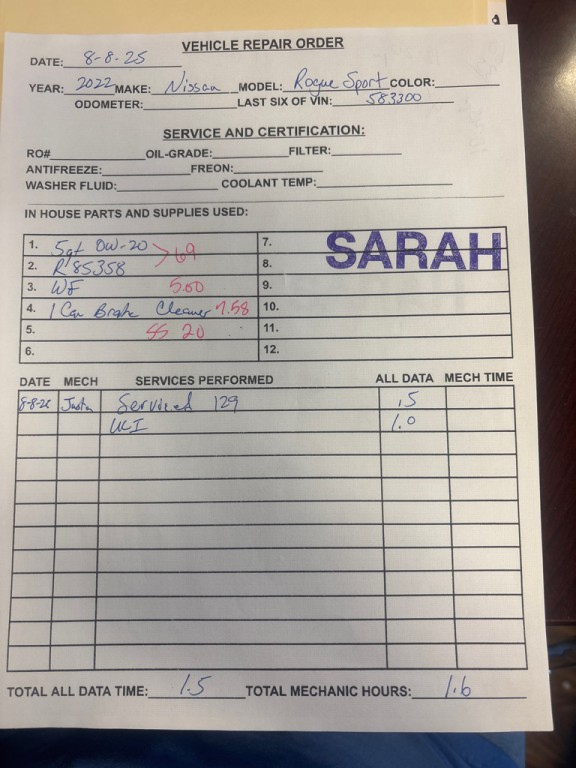 VEHICLE REPAIR ORDER
DATE: 8-8-25
YEAR: 2022 MAKE: Nissan MODEL: Rogue Sport COLOR:
ODOMETER: LAST SIX OF VIN: 583300
SERVICE AND CERTIFICATION:
RO# OIL-GRADE: FILTER:
ANTIFREEZE: FREON:
WASHER FLUID: COOLANT TEMP:
IN HOUSE PARTS AND SUPPLIES USED:
1. 5qt 0W-20 >69 7.
SARAH
2. R85358 8.
3. WF 5.00 9.
4. 1 Can Brake Cleaner 7.58 10.
5. SS 20 11.
6. 12.
DATE MECH SERVICES PERFORMED ALL DATA MECH TIME
Serviced 129 .5
UCI 1.0
TOTAL ALL DATA TIME: 1.5 TOTAL MECHANIC HOURS: 1.6